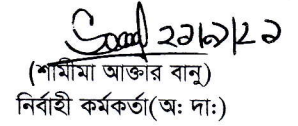 ২৯/৯/২১
(শামীমা আক্তার বানু)
নির্বাহী কর্মকর্তা(অঃ দাঃ)